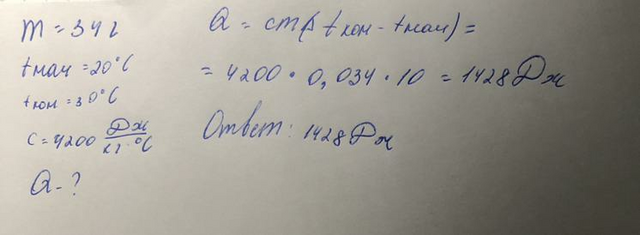 m = 34 г
tнач = 20°C
tкон = 30°C
C = 4200 Дж/кг·°C
Q - ?
Q = cm(tкон - tнач) =
= 4200 · 0,034 · 10 = 1428 Дж
Ответ: 1428 Дж